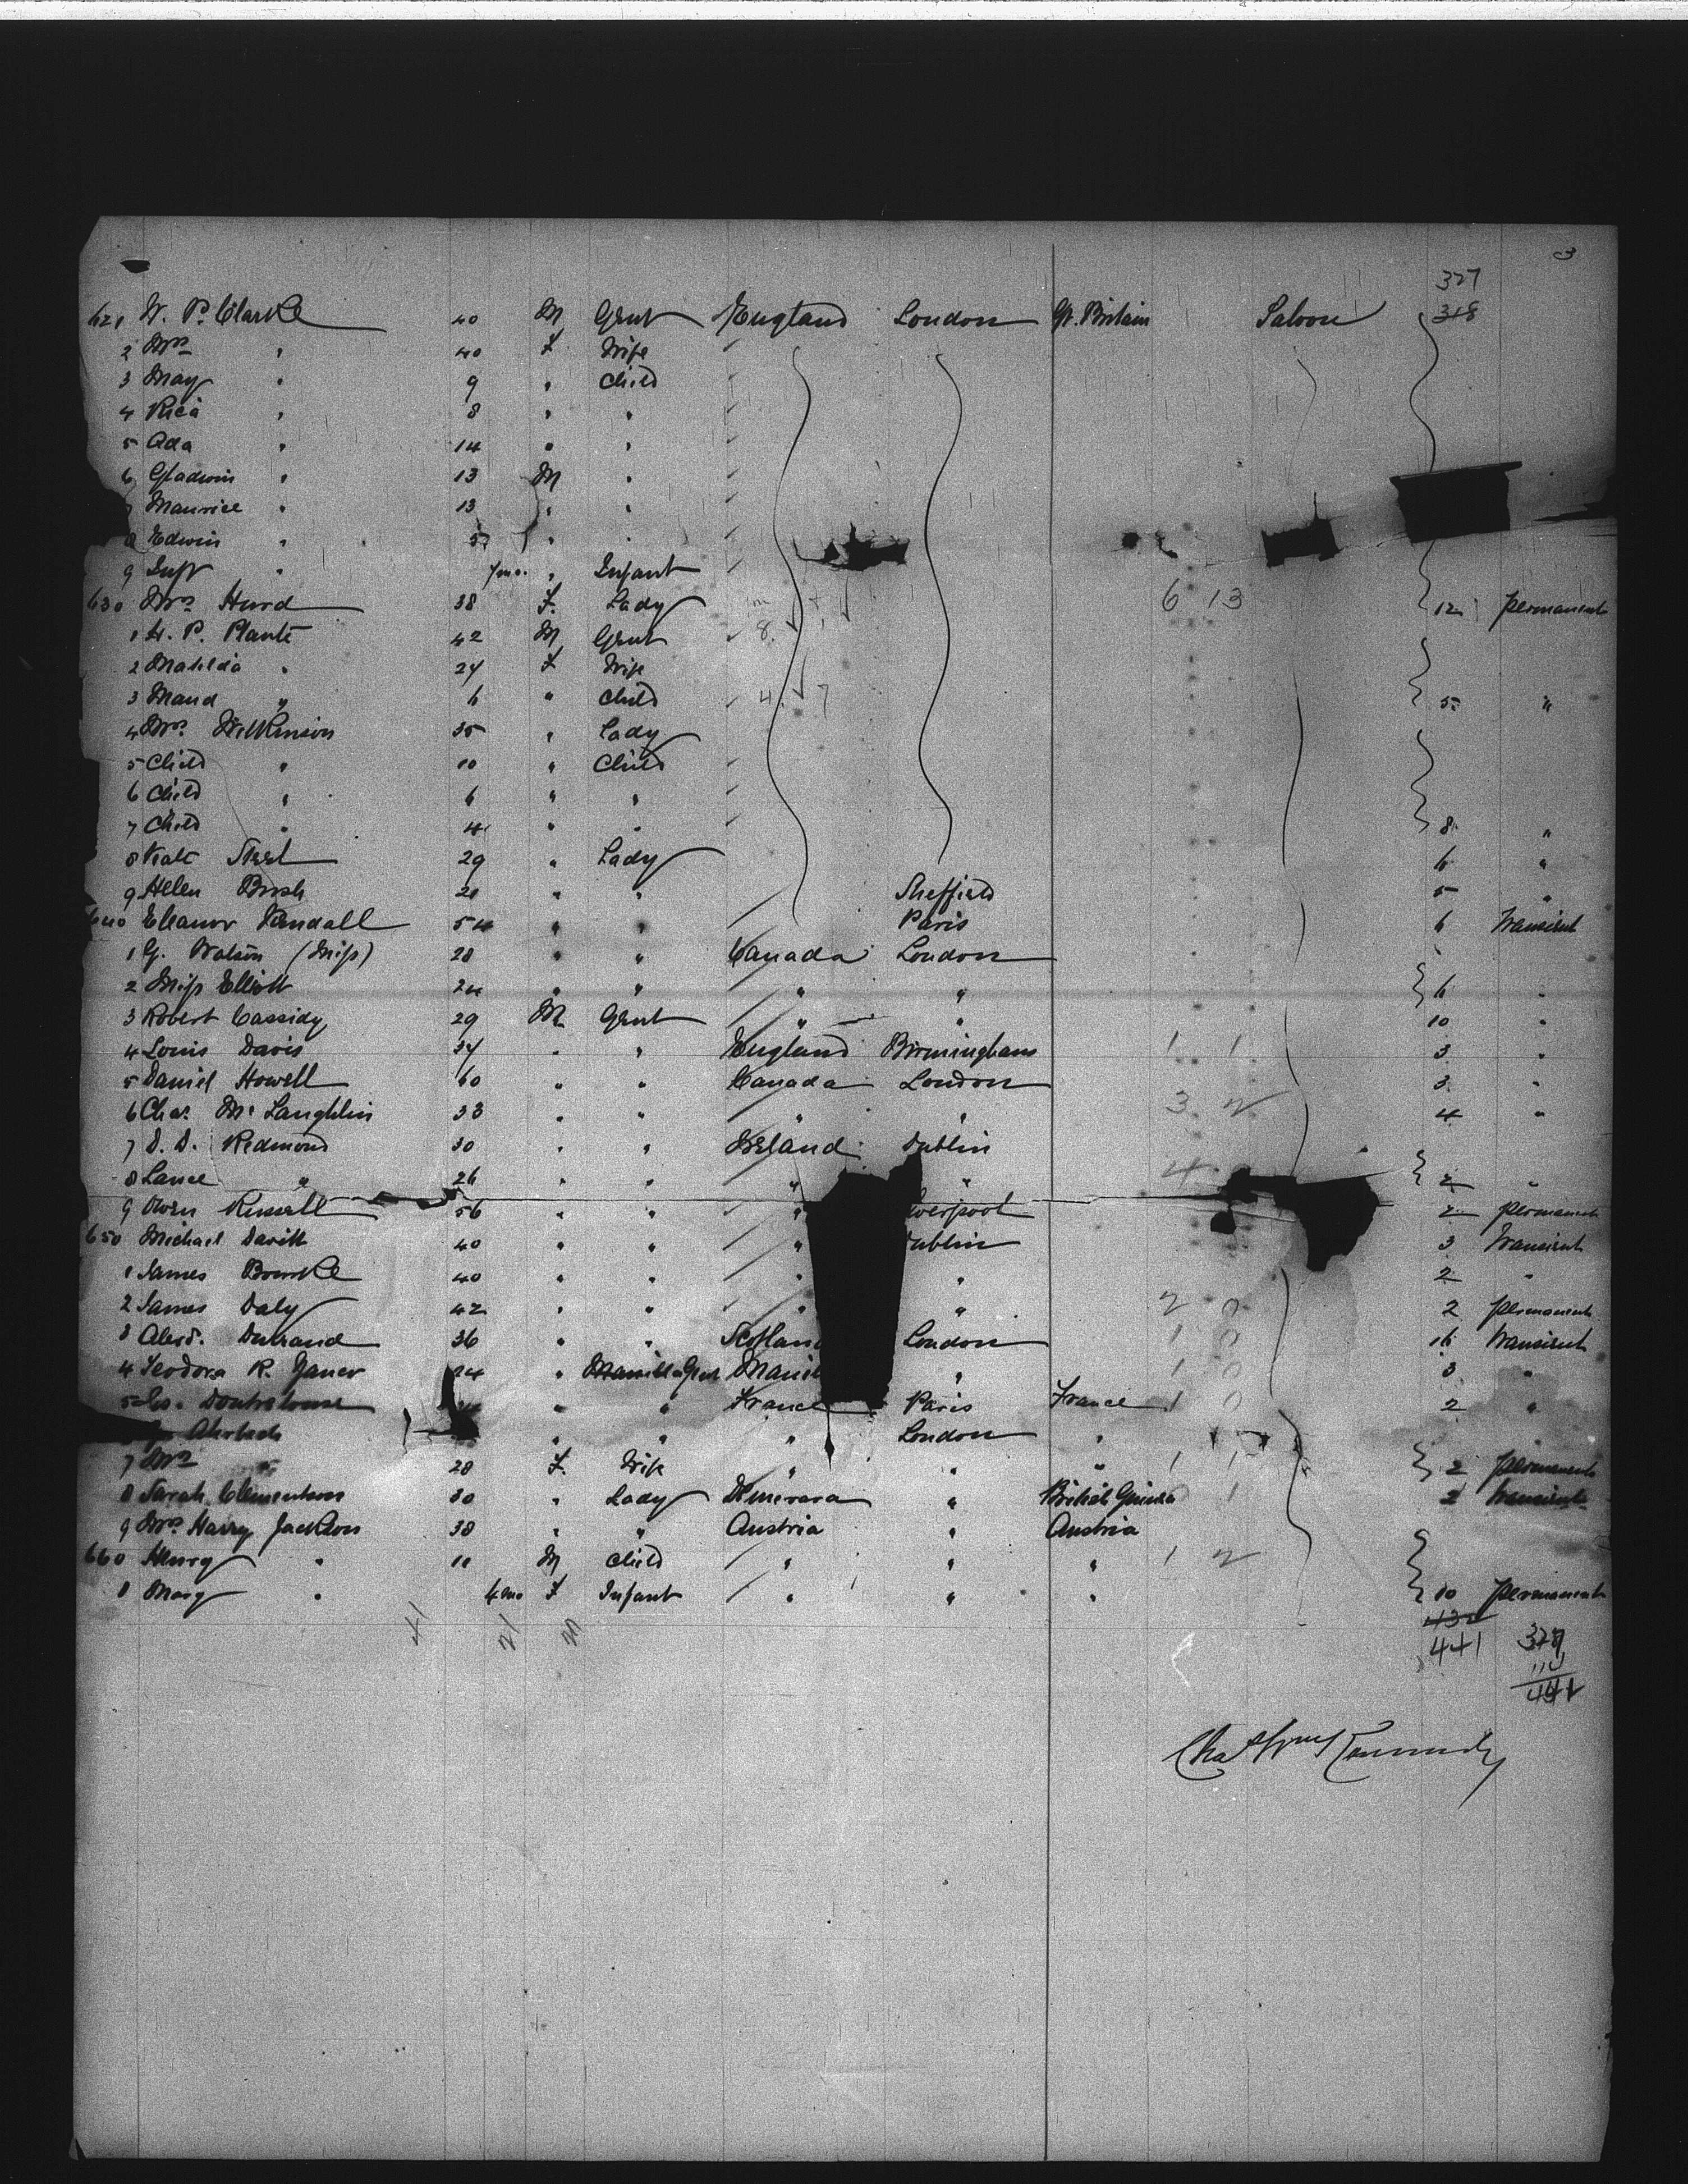 3
327
621 W. P. Clarke 40 M Gent England London Gt. Britain Saloon 318
2 Mrs " 40 F Wife
3 May " 9 " Child
4 Rica " 8 " "
5 Ada " 14 " "
6 Gladwin " 13 M "
Maurice " 13 " "
8 Edwin " 5 " "
9 Inft " 7 mo. " Infant
630 Mrs Hurd 38 F. Lady 6 13 12 permanent
1 H. P. Plante 42 M Gent 8
2 Matilda " 24 F Wife
3 Maud " 6 " Child 4 7 5 "
4 Mrs. Wilkinson 35 " Lady
5 Child " 10 " Child
6 Child " 6 " "
7 Child " 4 " " 8 "
8 Kate Steel 29 " Lady 6 "
9 Helen Bush 21 " " Sheffield 5 "
640 Eleanor Kendall 54 " " Paris 6 transient
1 G. Watson (Miss) 28 " " Canada London
2 Miss Elliott 24 " " " " 6 "
3 Robert Cassidy 29 M Gent " " 10 "
4 Louis Davis 34 " " England Birmingham 1 1 3 "
5 Daniel Howell 60 " " Canada London 3 "
6 Chas. McLaughlin 33 " " " " 3 2 4 "
7 D. D. Redmond 30 " " Ireland Dublin
8 Lance " 26 " " " " 4 2 "
9 Owen Russell 56 " " " verpool 2 permanent
650 Michael Davitt 40 " " " ublin 3 transient
1 James Bourke 40 " " " " 2 "
2 James Daly 42 " " " " 2 0 2 permanent
3 Alexd. Durrand 36 " " Scotland London 1 0 16 transient
4 Teodoro R. Yanev 24 " Manilla Gent Manil " 1 0 3 "
5 " " France Paris France 1 0 2 "
" " " London "
7 Mrs " 28 F. Wife " " " 1 1 2 permanent
8 Sarah Clementson 30 " Lady Demerara " British Guinea 1 2 transient
9 Mrs Harry Jackson 38 " " Austria " Austria
660 Henry " 11 M Child " " " 1 2
1 Mary " 4 mo F Infant " " " 10 permanent
41 21 20 432
441 327
441
Chas Wm Kennedy